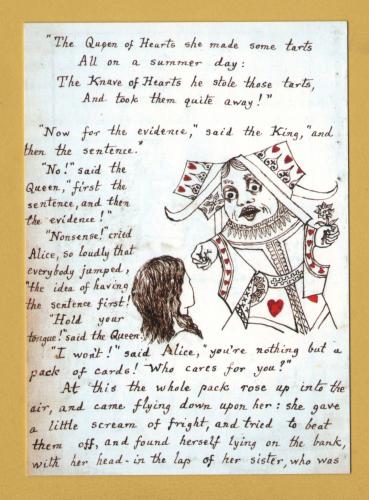 "The Queen of Hearts she made some tarts
All on a summer day:
The Knave of Hearts he stole those tarts,
And took them quite away!"
"Now for the evidence," said the King, "and
then the sentence."
"No!" said the
Queen, "first the
sentence, and then
the evidence!"
"Nonsense!" cried
Alice, so loudly that
everybody jumped,
"the idea of having
the sentence first!
"Hold your
tongue!" said the Queen.
"I won't!" said Alice, "you're nothing but a
pack of cards! Who cares for you?"
At this the whole pack rose up into the
air, and came flying down upon her: she gave
a little scream of fright, and tried to beat
them off, and found herself lying on the bank,
with her head in the lap of her sister, who was